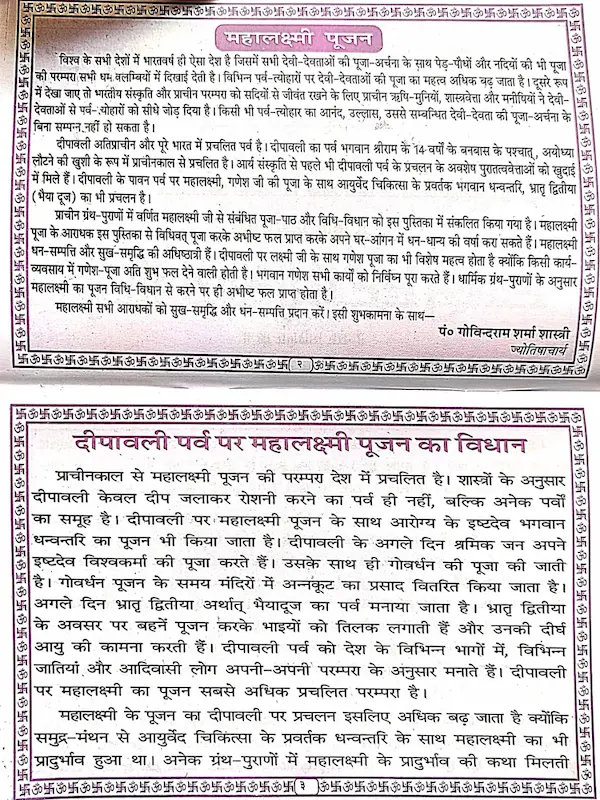 महालक्ष्मी पूजन
विश्व के सभी देशों में भारतवर्ष ही ऐसा देश है जिसमें सभी देवी-देवताओं की पूजा-अर्चना के साथ पेड़-पौधों और नदियों की भी पूजा
की परम्परा सभी धर्मावलम्बियों में दिखाई देती है। विभिन्न पर्व-त्योहारों पर देवी-देवताओं की पूजा का महत्व अधिक बढ़ जाता है। दूसरे रूप
में देखा जाए तो भारतीय संस्कृति और प्राचीन परम्परा को सदियों से जीवंत रखने के लिए प्राचीन ऋषि-मुनियों, शास्त्रवेत्ता और मनीषियों ने देवी-
देवताओं से पर्व-त्योहारों को सीधे जोड़ दिया है। किसी भी पर्व-त्योहार का आनंद, उल्लास, उससे सम्बन्धित देवी-देवता की पूजा-अर्चना के
बिना सम्पन्न नहीं हो सकता है।
दीपावली अतिप्राचीन और पूरे भारत में प्रचलित पर्व है। दीपावली का पर्व भगवान श्रीराम के 14 वर्षों के बनबास के पश्चात्, अयोध्या
लौटने की खुशी के रूप में प्राचीनकाल से प्रचलित है। आर्य संस्कृति से पहले भी दीपावली पर्व के प्रचलन के अवशेष पुरातत्ववेत्ताओं को खुदाई
में मिले हैं। दीपावली के पावन पर्व पर महालक्ष्मी, गणेश जी की पूजा के साथ आयुर्वेद चिकित्सा के प्रवर्तक भगवान धन्वन्तरि, भ्रातृ द्वितीया
(भैया दूज) का भी प्रचलन है।
प्राचीन ग्रंथ-पुराणों में वर्णित महालक्ष्मी जी से संबंधित पूजा-पाठ और विधि-विधान को इस पुस्तिका में संकलित किया गया है। महालक्ष्मी
पूजा के आराधक इस पुस्तिका से विधिवत् पूजा करके अभीष्ट फल प्राप्त करके अपने घर-आंगन में धन-धान्य की वर्षा करा सकते हैं। महालक्ष्मी
धन-सम्पत्ति और सुख-समृद्धि की अधिष्ठात्री हैं। दीपावली पर लक्ष्मी जी के साथ गणेश पूजा का भी विशेष महत्व होता है क्योंकि किसी कार्य-
व्यवसाय में गणेश-पूजा अति शुभ फल देने वाली होती है। भगवान गणेश सभी कार्यों को निर्विघ्न पूरा करते हैं। धार्मिक ग्रंथ-पुराणों के अनुसार
महालक्ष्मी का पूजन विधि-विधान से करने पर ही अभीष्ट फल प्राप्त होता है।
महालक्ष्मी सभी आराधकों को सुख-समृद्धि और धन-सम्पत्ति प्रदान करें। इसी शुभकामना के साथ—
पं० गोविन्दराम शर्मा शास्त्री
ज्योतिषाचार्य
२
दीपावली पर्व पर महालक्ष्मी पूजन का विधान
प्राचीनकाल से महालक्ष्मी पूजन की परम्परा देश में प्रचलित है। शास्त्रों के अनुसार
दीपावली केवल दीप जलाकर रोशनी करने का पर्व ही नहीं, बल्कि अनेक पर्वों
का समूह है। दीपावली पर महालक्ष्मी पूजन के साथ आरोग्य के इष्टदेव भगवान
धन्वन्तरि का पूजन भी किया जाता है। दीपावली के अगले दिन श्रमिक जन अपने
इष्टदेव विश्वकर्मा की पूजा करते हैं। उसके साथ ही गोवर्धन की पूजा की जाती
है। गोवर्धन पूजन के समय मंदिरों में अन्नकूट का प्रसाद वितरित किया जाता है।
अगले दिन भ्रातृ द्वितीया अर्थात् भैयादूज का पर्व मनाया जाता है। भ्रातृ द्वितीया
के अवसर पर बहनें पूजन करके भाइयों को तिलक लगाती हैं और उनकी दीर्घ
आयु की कामना करती हैं। दीपावली पर्व को देश के विभिन्न भागों में, विभिन्न
जातियां और आदिवासी लोग अपनी-अपनी परम्परा के अनुसार मनाते हैं। दीपावली
पर महालक्ष्मी का पूजन सबसे अधिक प्रचलित परम्परा है।
महालक्ष्मी के पूजन का दीपावली पर प्रचलन इसलिए अधिक बढ़ जाता है क्योंकि
समुद्र-मंथन से आयुर्वेद चिकित्सा के प्रवर्तक धन्वन्तरि के साथ महालक्ष्मी का भी
प्रादुर्भाव हुआ था। अनेक ग्रंथ-पुराणों में महालक्ष्मी के प्रादुर्भाव की कथा मिलती
३